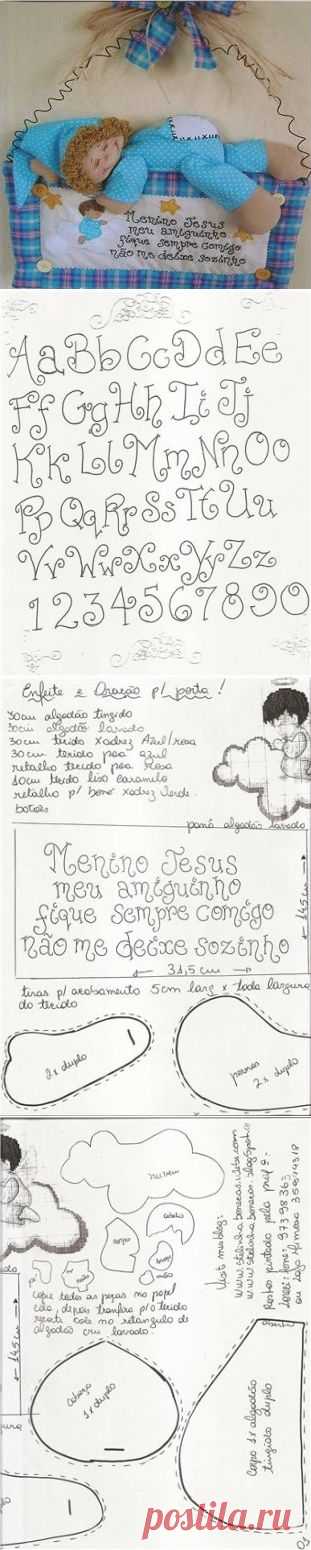 Menino Jesus
meu amiguinho
fique sempre comigo
não me deixe sozinho
Aa Bb Cc Dd Ee
Ff Gg Hh Ii Jj
Kk Ll Mm Nn Oo
Pp Qq Rr Ss Tt Uu
Vv Ww Xx Yy Zz
1 2 3 4 5 6 7 8 9 0
Enfeite e Oração p/ porta!
30cm algodão tingido
30cm algodão lavado
30cm tecido xadrez Azul/rosa
30cm tecido poa azul
retalho tecido poa Rosa
10cm tecido liso caramelo
retalho p/ boné xadrez Verde.
botões
pano algodão lavado
Menino Jesus
meu amiguinho
fique sempre comigo
não me deixe sozinho
14,5cm
31,5cm
tiras p/ acabamento 5cm larg x toda largura
do tecido
2x duplo
pernas
2x duplo
nuvem
cabelo
corpo
mão
copie todas as peças no papel
cola, depois transfira p/ o tecido
recorte cole no retângulo de
algodão cru lavado.
14,5cm
Cabeça
1x duplo
Corpo 1x algodão
tingido duplo
Visit meu blog:
Rostos pintados pela
postila.ru